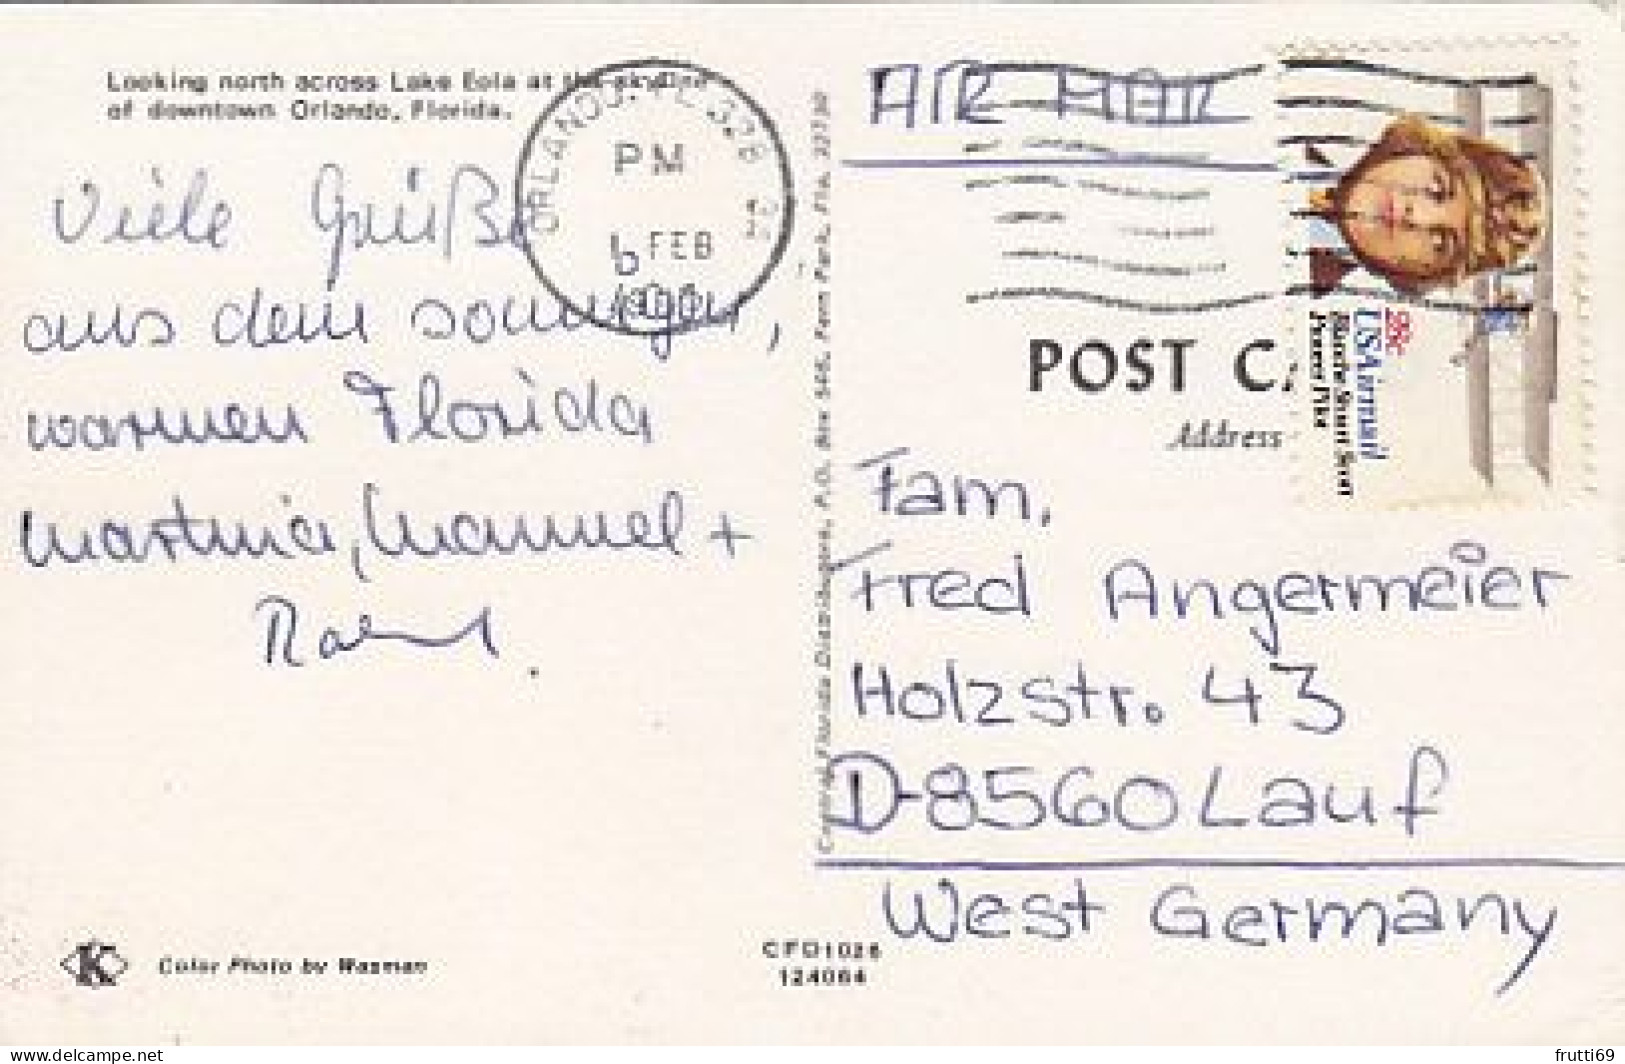 Looking north across Lake Eola at the skyline
of downtown Orlando, Florida.
Viele Grüße
aus dem sonnigen,
warmen Florida
Martina, Manuel +
ORLANDO, FL 328
PM
6 FEB
AIR MAIL
28c
USAirmail
Blanche Stuart Scott
Pioneer Pilot
POST C
Address
Fam.
Fred Angermeier
Holzstr. 43
D-8560 Lauf
West Germany
Central Florida Distributors, P.O. Box 565, Fern Park, Fla. 32730
K
Color Photo by Waxman
CFD1026
124064
delcampe.net
frutti69